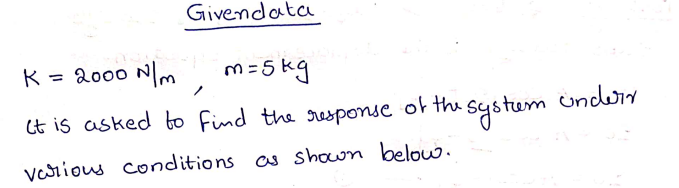 Givendata
K = 2000 N/m , m=5 kg
It is asked to find the response of the system under
various conditions as shown below.